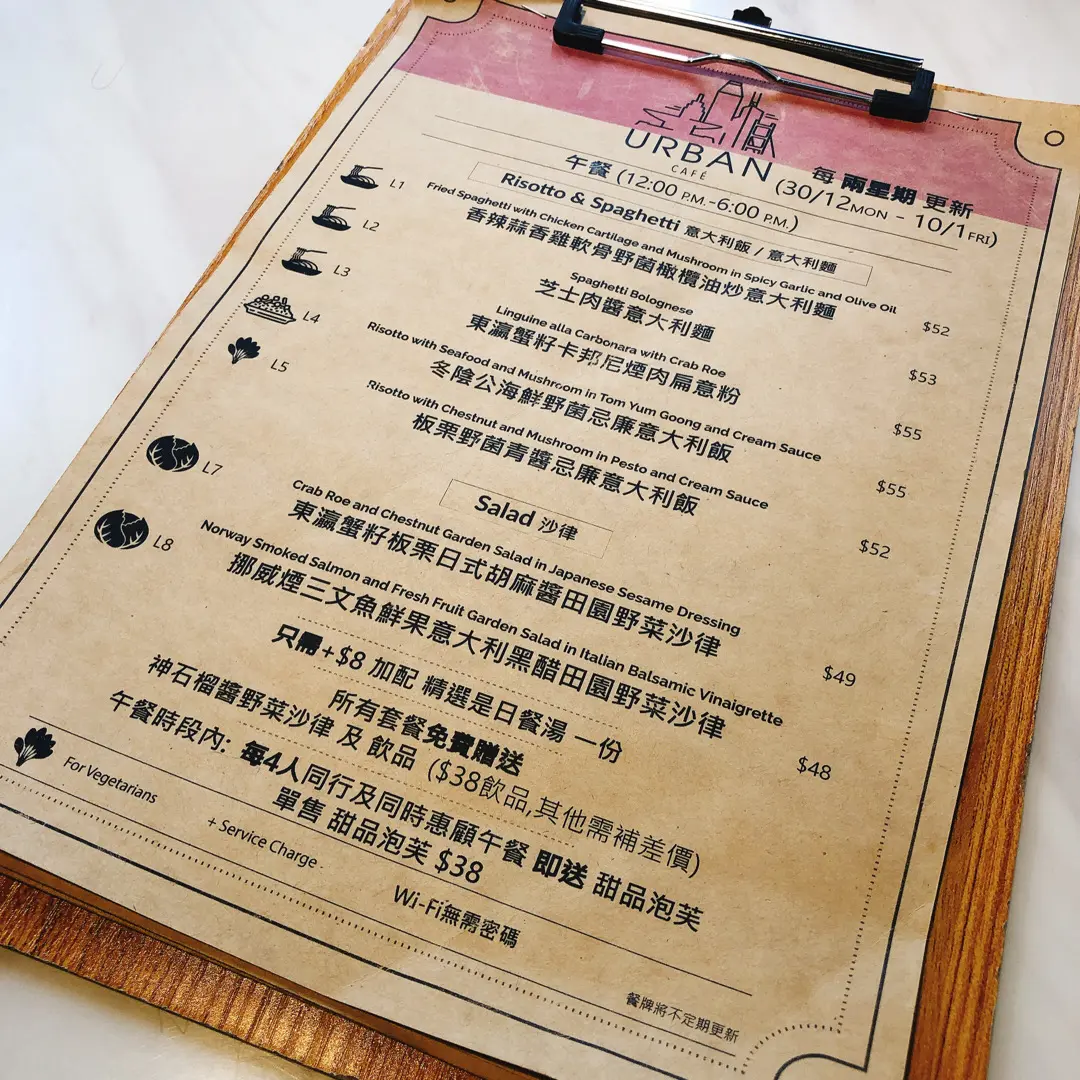 URBAN
CAFÉ
每 兩星期 更新
午餐 (12:00 P.M.-6:00 P.M.) (30/12MON - 10/1FRI)
Risotto & Spaghetti 意大利飯 / 意大利麵
L1 Fried Spaghetti with Chicken Cartilage and Mushroom in Spicy Garlic and Olive Oil
香辣蒜香雞軟骨野菌橄欖油炒意大利麵 $52
L2 Spaghetti Bolognese
芝士肉醬意大利麵 $53
L3 Linguine alla Carbonara with Crab Roe
東瀛蟹籽卡邦尼煙肉扁意粉 $55
L4 Risotto with Seafood and Mushroom in Tom Yum Goong and Cream Sauce
冬陰公海鮮野菌忌廉意大利飯 $55
L5 Risotto with Chestnut and Mushroom in Pesto and Cream Sauce
板栗野菌青醬忌廉意大利飯 $52
Salad 沙律
L7 Crab Roe and Chestnut Garden Salad in Japanese Sesame Dressing
東瀛蟹籽板栗日式胡麻醬田園野菜沙律 $49
L8 Norway Smoked Salmon and Fresh Fruit Garden Salad in Italian Balsamic Vinaigrette
挪威煙三文魚鮮果意大利黑醋田園野菜沙律 $48
只需+$8 加配 精選是日餐湯 一份
所有套餐免費贈送
神石榴醬野菜沙律 及 飲品 ($38飲品,其他需補差價)
午餐時段內: 每4人同行及同時惠顧午餐 即送 甜品泡芙
單售 甜品泡芙 $38
For Vegetarians
+ Service Charge
Wi-Fi無需密碼
餐牌將不定期更新